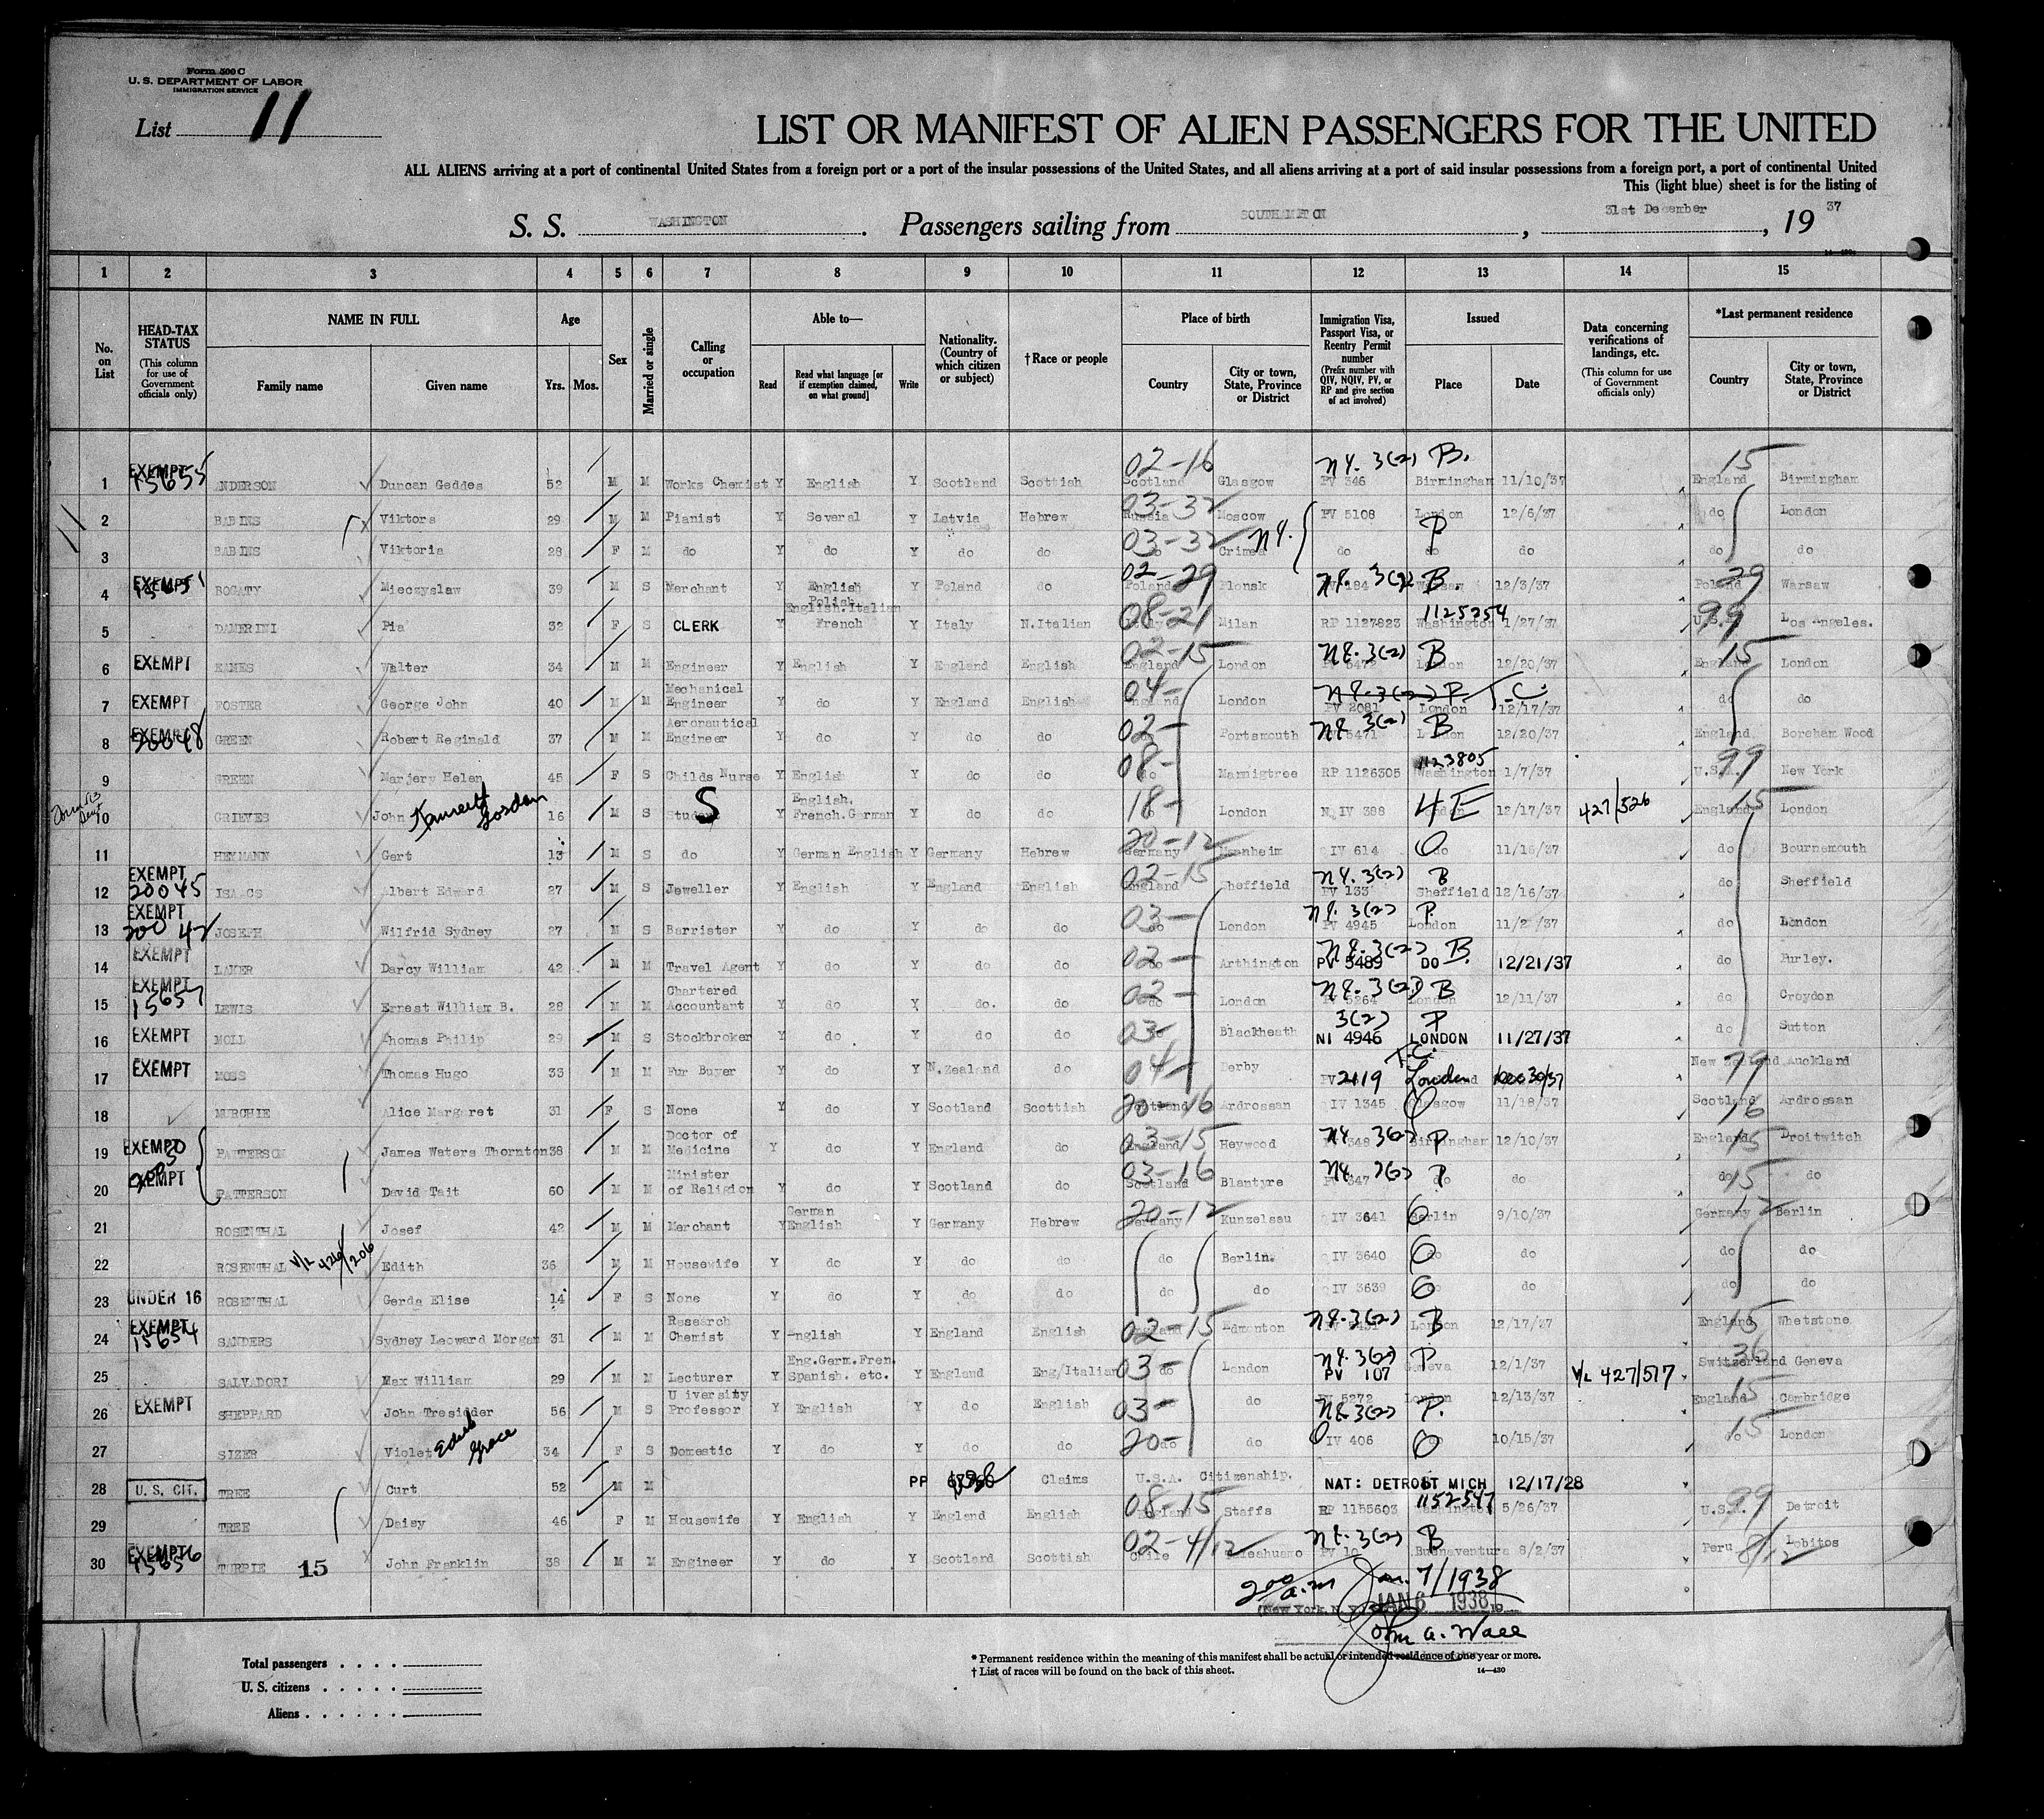 Form 500 C
U. S. DEPARTMENT OF LABOR
IMMIGRATION SERVICE
List 11
LIST OR MANIFEST OF ALIEN PASSENGERS FOR THE UNITED
ALL ALIENS arriving at a port of continental United States from a foreign port or a port of the insular possessions of the United States, and all aliens arriving at a port of said insular possessions from a foreign port, a port of continental United
This (light blue) sheet is for the listing of
S. S. WASHINGTON. Passengers sailing from SOUTHAMPTON, 31st December, 19 37
1 2 3 4 5 6 7 8 9 10 11 12 13 14 15
No. on List
HEAD-TAX STATUS (This column for use of Government officials only)
NAME IN FULL
Family name Given name
Age
Yrs. Mos.
Sex
Married or single
Calling or occupation
Able to—
Read Read what language [or if exemption claimed, on what ground] Write
Nationality. (Country of which citizen or subject)
†Race or people
Place of birth
Country City or town, State, Province or District
Immigration Visa, Passport Visa, or Reentry Permit number (Prefix number with QIV, NQIV, PV, or RP and give section of act involved)
Issued
Place Date
Data concerning verifications of landings, etc. (This column for use of Government officials only)
*Last permanent residence
Country City or town, State, Province or District
1 EXEMPT 15655 ANDERSON Duncan Geddes 52 M M Works Chemist Y English Y Scotland Scottish 02-16 Scotland Glasgow 3(2) PV 346 B. Birmingham 11/10/37 15 England Birmingham
2 BABINS Viktors 29 M M Pianist Y Several Y Latvia Hebrew 03-32 Russia Moscow PV 5108 London 12/6/37 do London
3 BABINS Viktoria 28 F M do Y do Y do do 03-32 do Crimea do P do do do do
4 EXEMPT BOGATY Mieczyslaw 39 M S Merchant Y English Polish Y Poland do 02-29 Poland Plonsk 184 3(2) B. Warsaw 12/3/37 29 Poland Warsaw
5 DAMERINI Pia 32 F S CLERK Y English.Italian French Y Italy N.Italian 08-21 Italy Milan RP 1127823 1125254 Washington 1/27/37 99 U.S.A. Los Angeles.
6 EXEMPT EAMES Walter 34 M M Engineer Y English Y England English 02-15 England London 3(2) B London 12/20/37 15 England London
7 EXEMPT FOSTER George John 40 M M Mechanical Engineer Y do Y England English 04- England London PV 2081 P. T.C. London 12/17/37 do do
8 EXEMPT 20048 GREEN Robert Reginald 37 M M Aeronautical Engineer Y do Y do do 02- Portsmouth 3(2) 5471 B London 12/20/37 England Boreham Wood
9 GREEN Marjery Helen 45 F S Childs Nurse Y English Y do do 08- do Mannigtree RP 1126305 1123805 Washington 1/7/37 99 U.S.A. New York
10 GRIEVES John Kenneth Gordon 16 M S Student S Y English. French.German Y do do 18- London NQIV 388 4E London 12/17/37 427/526 15 England London
11 HEYMANN Gert 13 M S do Y German English Y Germany Hebrew 20-12 Germany Mannheim QIV 614 O do 11/16/37 do Bournemouth
12 EXEMPT 20045 ISAACS Albert Edward 27 M S Jeweller Y English Y England English 02-15 England Sheffield 3(2) PV 133 B Sheffield 12/16/37 do Sheffield
13 EXEMPT JOSEPH Wilfrid Sydney 27 M S Barrister Y do Y do do 03- do London 3(2) PV 4945 P. London 11/2 /37 do London
14 EXEMPT LAKER Darcy William 42 M M Travel Agent Y do Y do do 02- do Arthington 3(2) PV 5489 DO B. 12/21/37 do Purley.
15 EXEMPT 15657 LEWIS Ernest William B. 28 M M Chartered Accountant Y do Y do. do 02- London 3(2) 5264 B London 12/11/37 do Croydon
16 EXEMPT MOLL Thomas Philip 29 M S Stockbroker Y do Y do do 03- Blackheath 3(2) NI 4946 P LONDON 11/27/37 do Sutton
17 EXEMPT MOSS Thomas Hugo 33 M M Fur Buyer Y do Y N.Zealand do 04- Derby PV 2119 T.C. London 30/37 79 New Zealand Auckland
18 MURCHIE Alice Margaret 31 F S None Y do Y Scotland Scottish 20-16 Scotland Ardrossan QIV 1345 O Glasgow 11/18/37 Scotland 16 Ardrossan
19 EXEMPT PATTERSON James Waters Thornton 38 M M Doctor of Medicine Y do Y England do 03-15 England Heywood 348 3(2) P Birmingham 12/10/37 15 England Droitwitch
20 EXEMPT PATTERSON David Tait 60 M M Minister of Religion Y do Y Scotland do 03-16 Scotland Blantyre PV 347 P do do 15 do do
21 ROSENTHAL Josef 42 M M Merchant Y German English Y Germany Hebrew 20-12 Germany Kunzelsau QIV 3641 O Berlin 9/10/37 Germany 12 Berlin
22 ROSENTHAL V/L 426/206 Edith 36 M M Housewife Y do Y do do do Berlin. QIV 3640 O do do do do
23 UNDER 16 ROSENTHAL Gerda Elise 14 F S None Y do Y do do do do QIV 3639 O do do do
24 EXEMPT 15654 SANDERS Sydney Leoward Morgan 31 M M Research Chemist Y English Y England English 02-15 England Edmonton 3(2) B London 12/17/37 15 England Whetstone
25 SALVADORI Max William 29 M M Lecturer Y Eng.Germ.Fren. Spanish. etc. Y England Eng/Italian 03- do London 3(2) PV 107 P. Geneva 12/1/37 V/L 427/517 36 Switzerland Geneva
26 EXEMPT SHEPPARD John Tresidder 56 M S U iversity Professor Y English Y do English 03- do PV 5272 3(2) London P. 12/13/37 15 England Cambridge
27 SIZER Violet Edith Grace 34 F S Domestic Y do Y do do 20- do do QIV 406 O do 10/15/37 15 do London
28 U. S. CIT. TREE Curt 52 M M PP Claims U.S.A. Citizenship. NAT: DETROIT MICH 12/17/28
29 TREE Daisy 46 F M Housewife Y English Y England English 08-15 England Staffs RP 1155603 1152547 Washington 5/26/37 99 U.S.A. Detroit
30 EXEMPT 15656 TORPIE 15 John Franklin 38 M M Engineer Y do Y Scotland Scottish 02-4/12 Chile 3(2) PV 10 B Buenaventura 8/2/37 Peru 8/12 Lobitos
200 a.m Jan. 7/1938
(New York, N. Y.) JAN 6 1938
John A. Wall
Total passengers
U. S. citizens
Aliens
* Permanent residence within the meaning of this manifest shall be actual or intended residence of one year or more.
† List of races will be found on the back of this sheet.
14—430